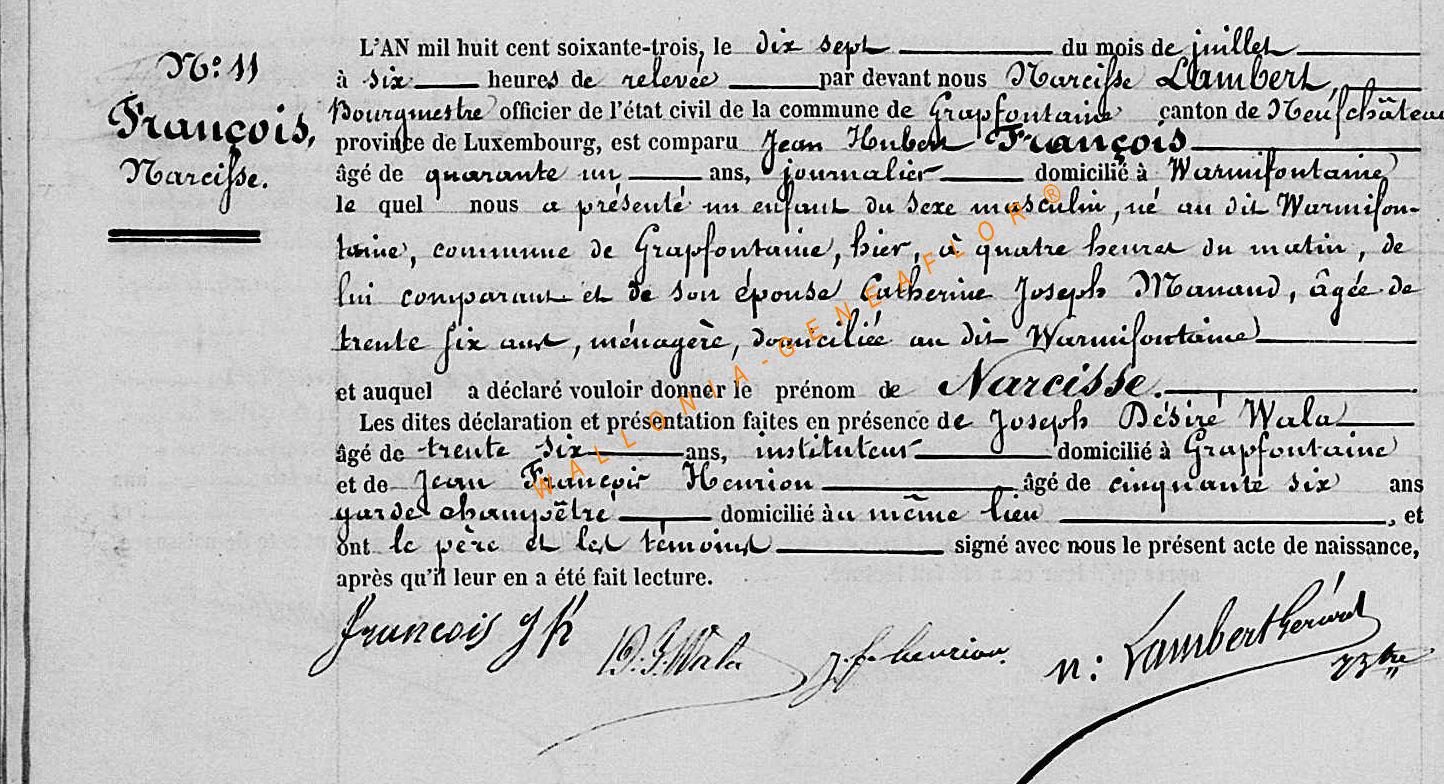 N° 11
François,
Narcisse.
L'AN mil huit cent soixante-trois, le dix sept du mois de juillet
à six heures de relevée par devant nous Narcisse Lambert,
Bourgmestre officier de l'état civil de la commune de Grapfontaine canton de Neufchâteau
province de Luxembourg, est comparu Jean Hubert François
âgé de quarante un ans, journalier domicilié à Warmifontaine
le quel nous a présenté un enfant du sexe masculin, né au dit Warmifon-
taine, commune de Grapfontaine, hier, à quatre heures du matin, de
lui comparant et de son épouse Catherine Joseph Manand, âgée de
trente six ans, ménagère, domiciliée au dit Warmifontaine
et auquel a déclaré vouloir donner le prénom de Narcisse.
Les dites déclaration et présentation faites en présence de Joseph Désiré Wala
âgé de trente six ans, instituteur domicilié à Grapfontaine
et de Jean François Henrion âgé de cinquante six ans
garde champêtre domicilié àu même lieu, et
ont le père et les témoins signé avec nous le présent acte de naissance,
après qu'il leur en a été fait lecture.
francois j h
D. J. Wala
J. f. henrion.
n: Lambert Gérard
WALLONIA-GENEAFLOR®